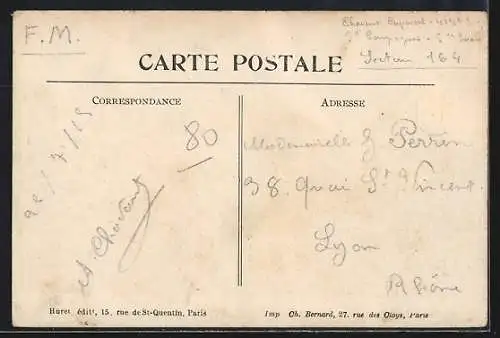 F. M.
Section 164
CARTE POSTALE
CORRESPONDANCE
ADRESSE
80
Mademoiselle G Perrin
38. Quai St Vincent.
Lyon
Rhône
Huret édit', 15, rue de St-Quentin, Paris
Imp Ch. Bernard, 27. rue des Cloys, Paris